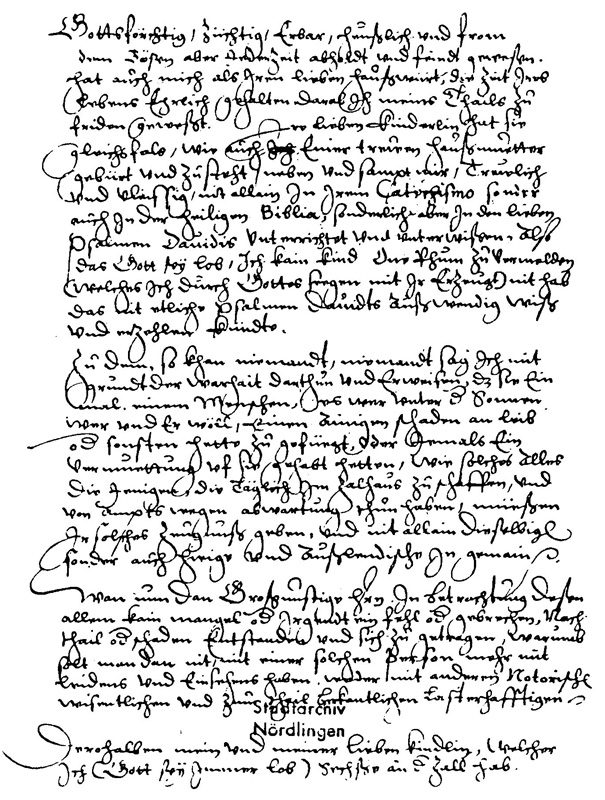 Gottsförchtig, Züchtig, Erbar, heüßlich vnd from
dem Bösen aber Jederzeit abholdt vnd feindt gewesen.
hat auch mich als Jren lieben haußwürt, die Zeit Jres
Lebens Ehrlich gehalten darab Jch meins Thails zu
friden gewesst. Ire lieben Kinderlin hat sie
gleichsfals, wie auch Einer trewen haußmuetter
gebürt vnd Zusteht, neben vnd sampt mir, Trewlich
vnd vleissig, nit allain Jn Jrem Catechismo sonder
auch Jn der Heiligen Biblia, sonderlich aber Jn den lieben
Psalmen Dauidis vnterrichtet vnd vnterwisen, Also
das Gott sey lob, Jch kain kind One Rhum zu vermelden
(welches Jch durch Gottes seegen mit Jr Erzeugt) nit hab
das nit etliche Psalmen Dauidts außwendig wiß
vnd erzehlen kündte.
Zu dem, so khan niemandt, niemandt sag Jch mit
grundt der warhait darthun vnd Erweisen, dz sie Ein
mal einem Menschen, Jes wer vnter d Sonnen
wer vnd Er wöll, Einen Ainigen schaden an leib
od sonsten hette zu gefüegt, oder Jemals Ein
vermuettung vf sie gehabt hetten, wie solches alles
die Jenigen, die Täglich Jm Zalhaus zu schaffen, vnd
von ampts wegen abwartung thun haben, müeßen
Jr solches Zeugnuß geben, vnd nit allain dieselbige
sonder auch hieige vnd Außlendische Jn gemain.
Wan nun dan Großgünstige hrn Jn betrachtung dessen
allem kain mangel od Jrgendt ein fehl od gebrechen, Nach
thail od schaden Entstanden vnd sich zu getragen, warumb
solt man dan nit, mit einer solchen Person mehr mit
leidens vnd Einsehens haben weder mit anderen Notorischen
wissentlichen vnd zum thail bekantlichen Lasterhafftigen
Stadtarchiv
Nördlingen
Derohalben mein vnd meiner lieben kindlin, (welcher
Jch (Gott sey Jmmer lob) Sechse an d Zall hab.